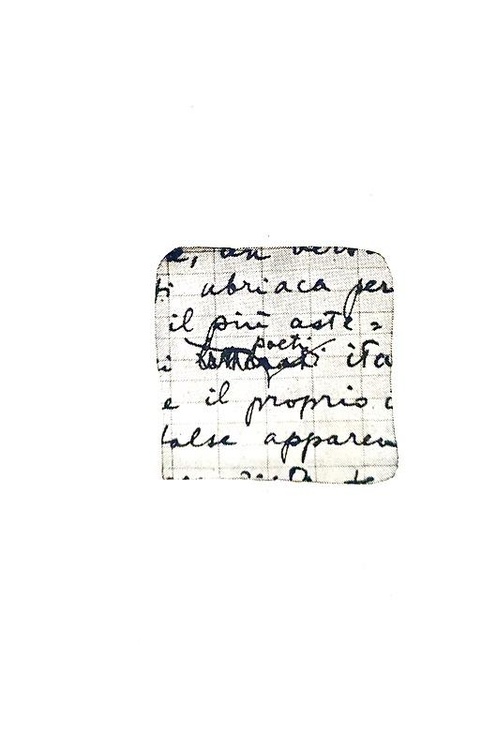 , un vers
ti ubriaca per
il più aste=
poeti
i ita
e il proprio i
false apparen